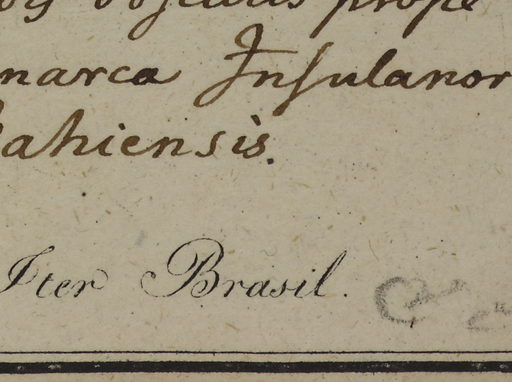 obscuris prope
marca Insulanor
Bahiensis.
Iter Brasil.